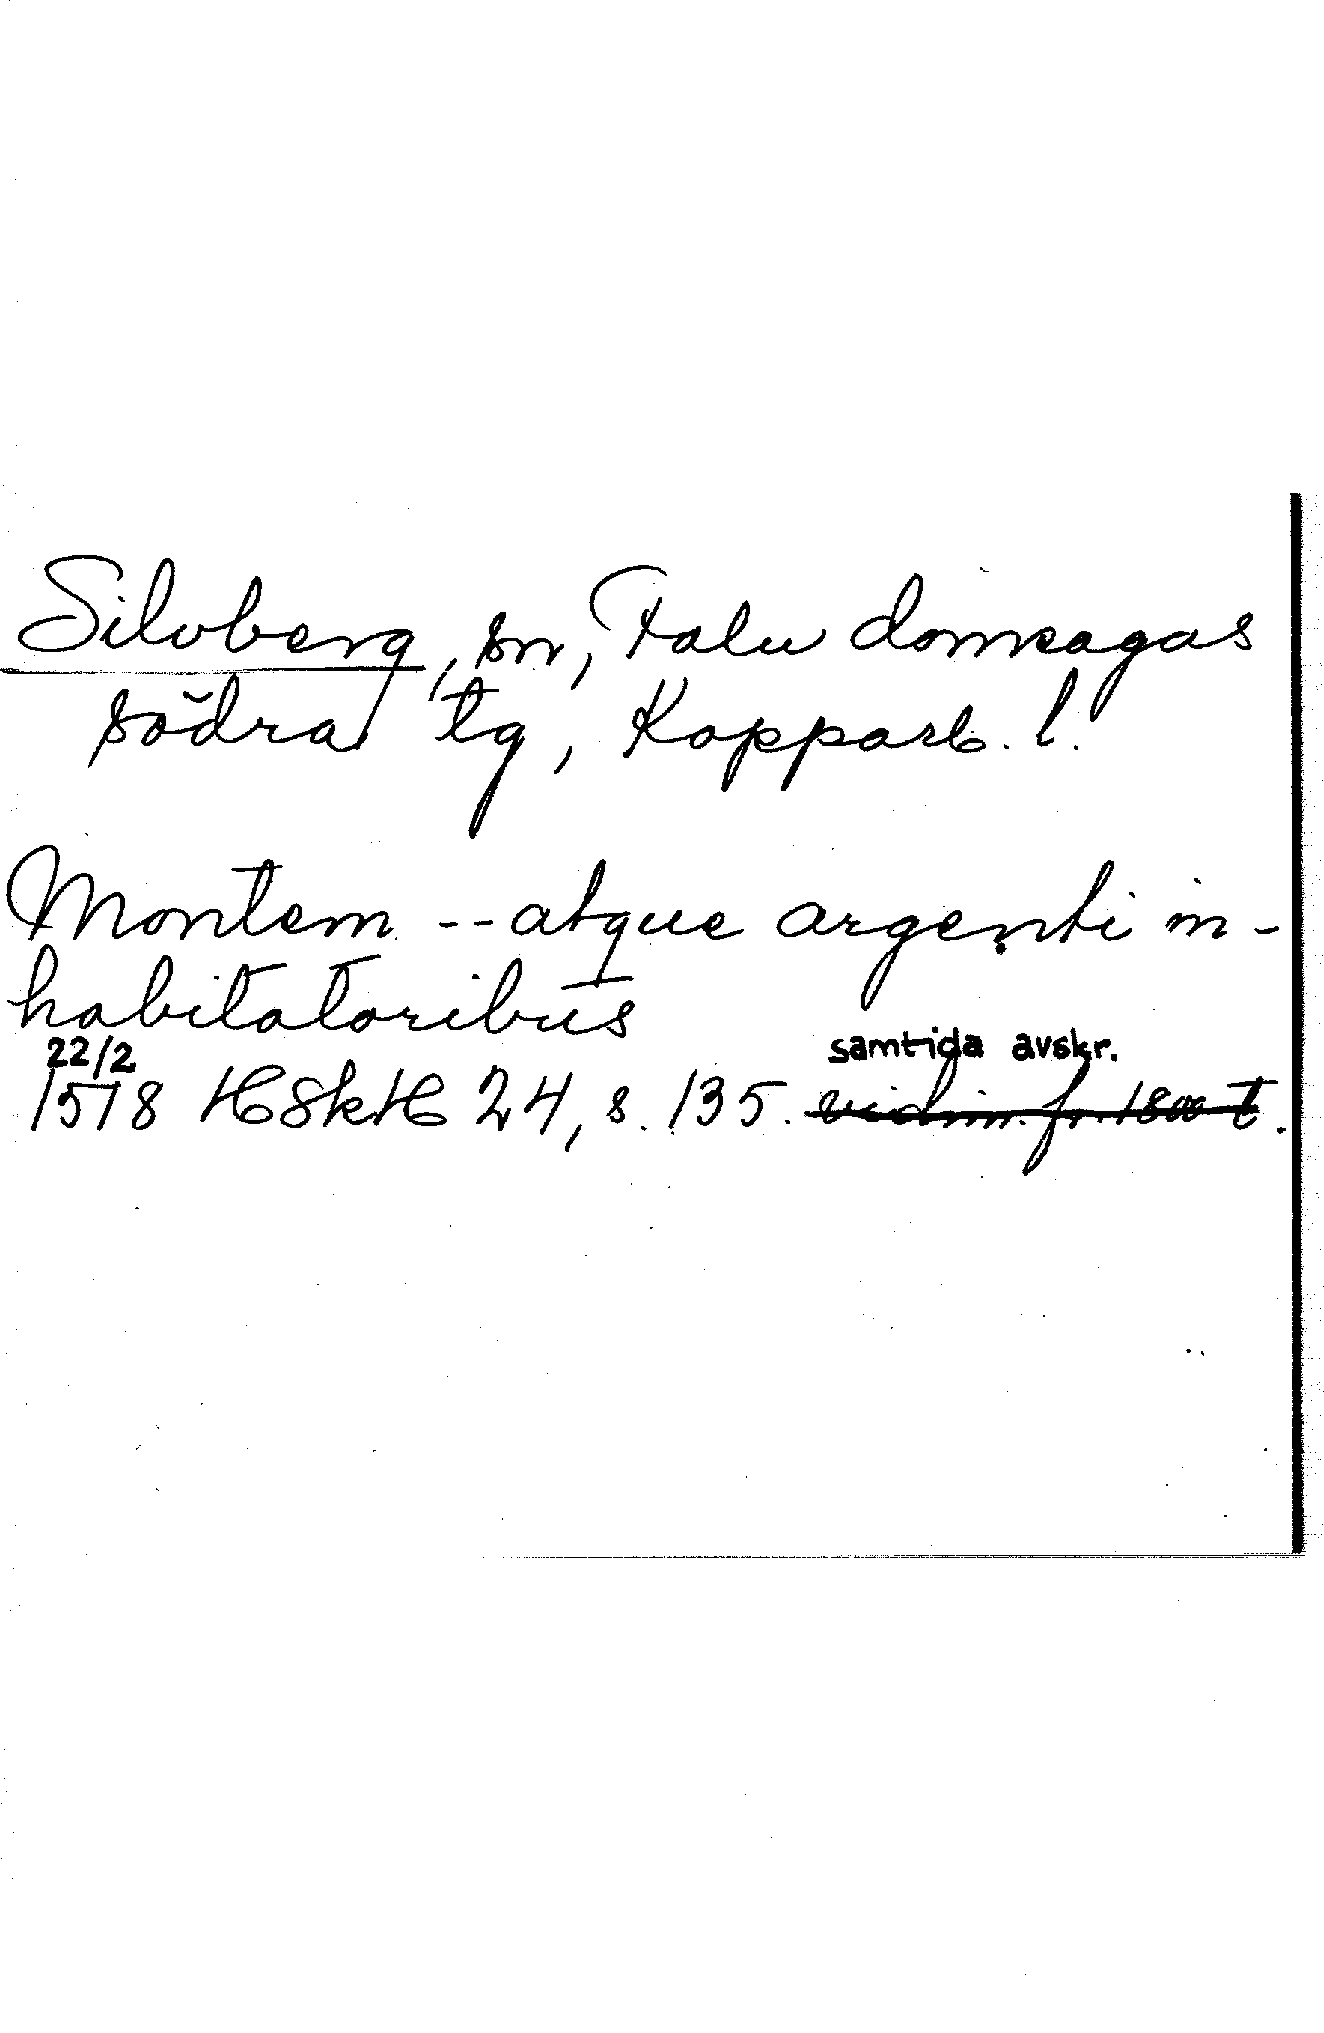 Silvberg, sn, Falu domsagas
södra tg, Kopparb. l.
Montem -- atque argenti in-
habitatoribus
22/2 samtida avskr.
1518 HSkH 24, s. 135. vidim. fr. 1800 t.